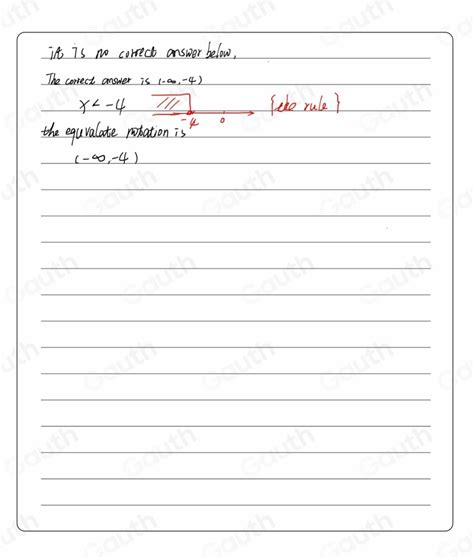 it is no correct answer below,
The correct answer is (-∞,-4)
x < -4 -4 0 {the rule}
the equvalate notation is
(-∞,-4)